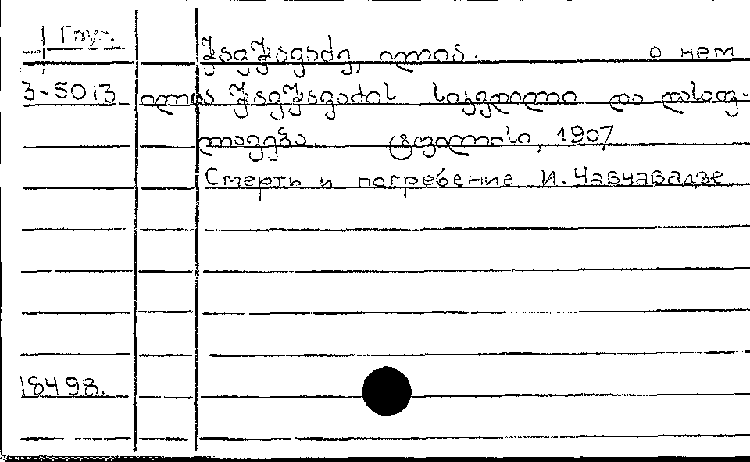 Груз.
ჭავჭავაძე, ილია. о нем
3-5013 ილია ჭავჭავაძის სიკვდილი და დასაფ-
ლავება ტფილისი, 1907
Смерть и погребение И. Чавчавадзе
18498.